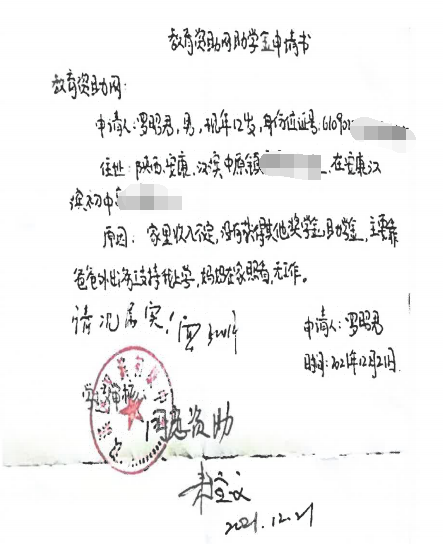 教育资助网助学金申请书
教育资助网:
申请人:罗昭君,男,现年12岁,身份证号:610901
住址:陕西安康,汉滨中原镇 在安康汉
滨初中
原因:家里收入不定,没有获得其他奖学金助学金,主要靠
爸爸外出务工支持我上学,妈妈在家照看,无工作。
情况属实!
申请人:罗昭君
时间:2021年12月21日.
学校审核:
同意资助
2021.12.21